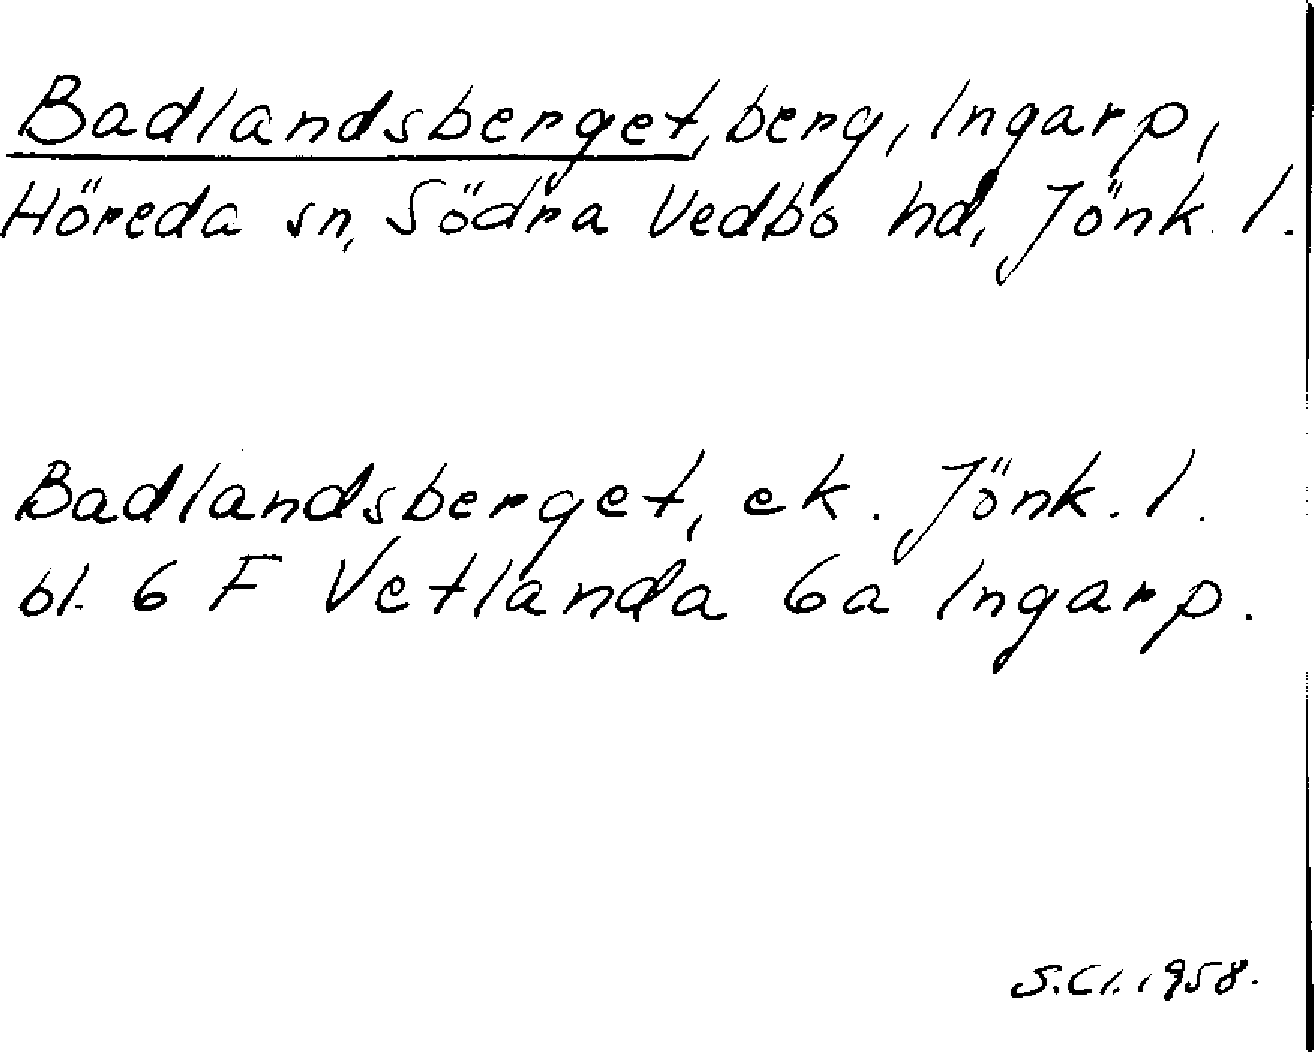 Badlandsberget, berg, Ingarp,
Höreda sn, Södra Vedbo hd, Jönk. l.
Badlandsberget, ek. Jönk. l.
bl. 6 F Vetlanda 6a Ingarp.
S.Cl. 1958.